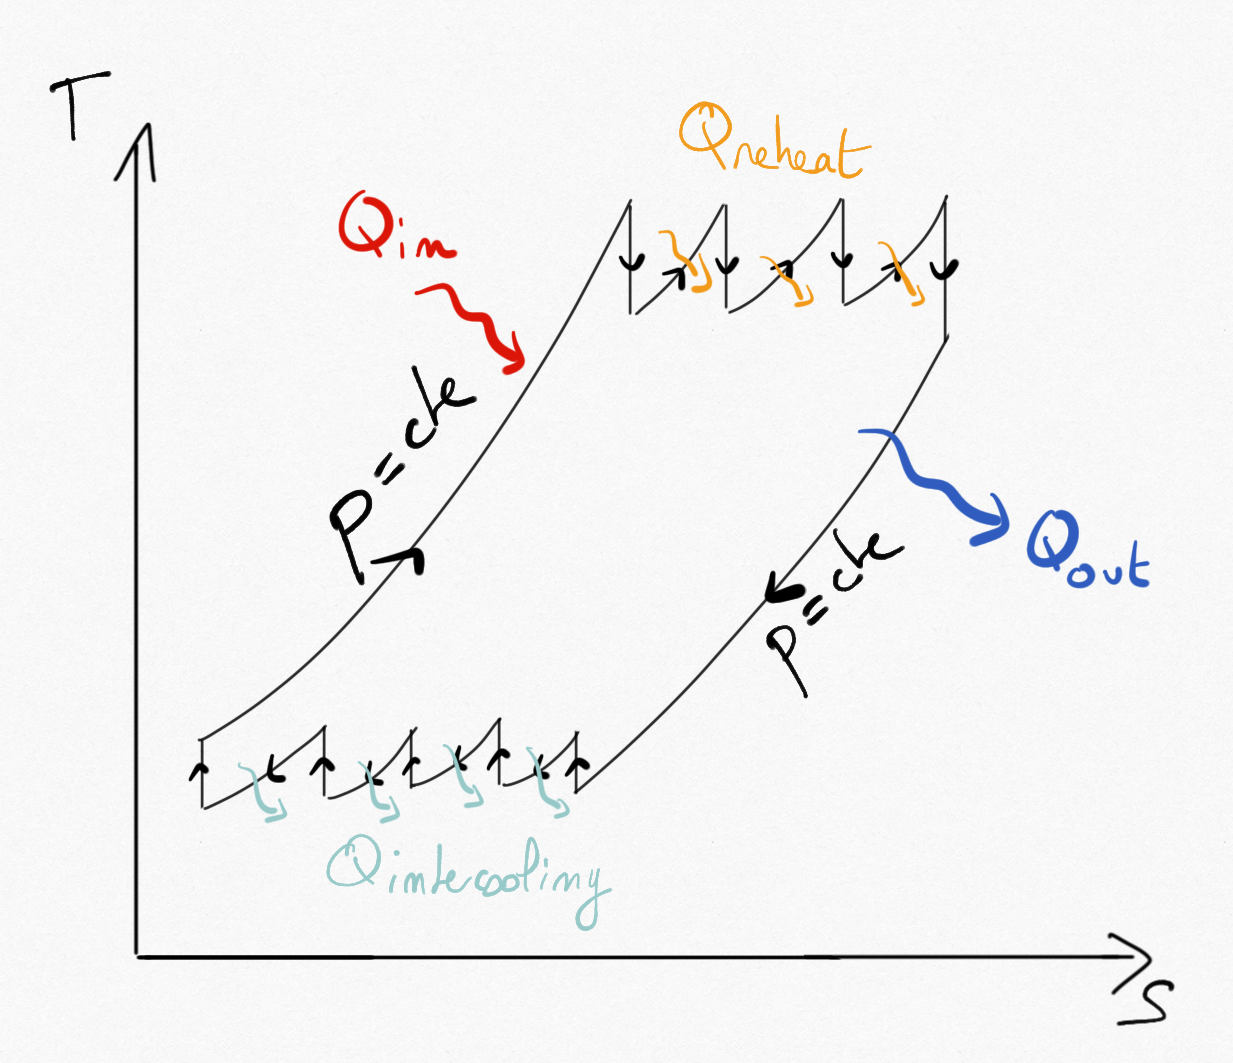 T
Qreheat
Qin
P=cte
Qout
P=cte
Qintercooling
S